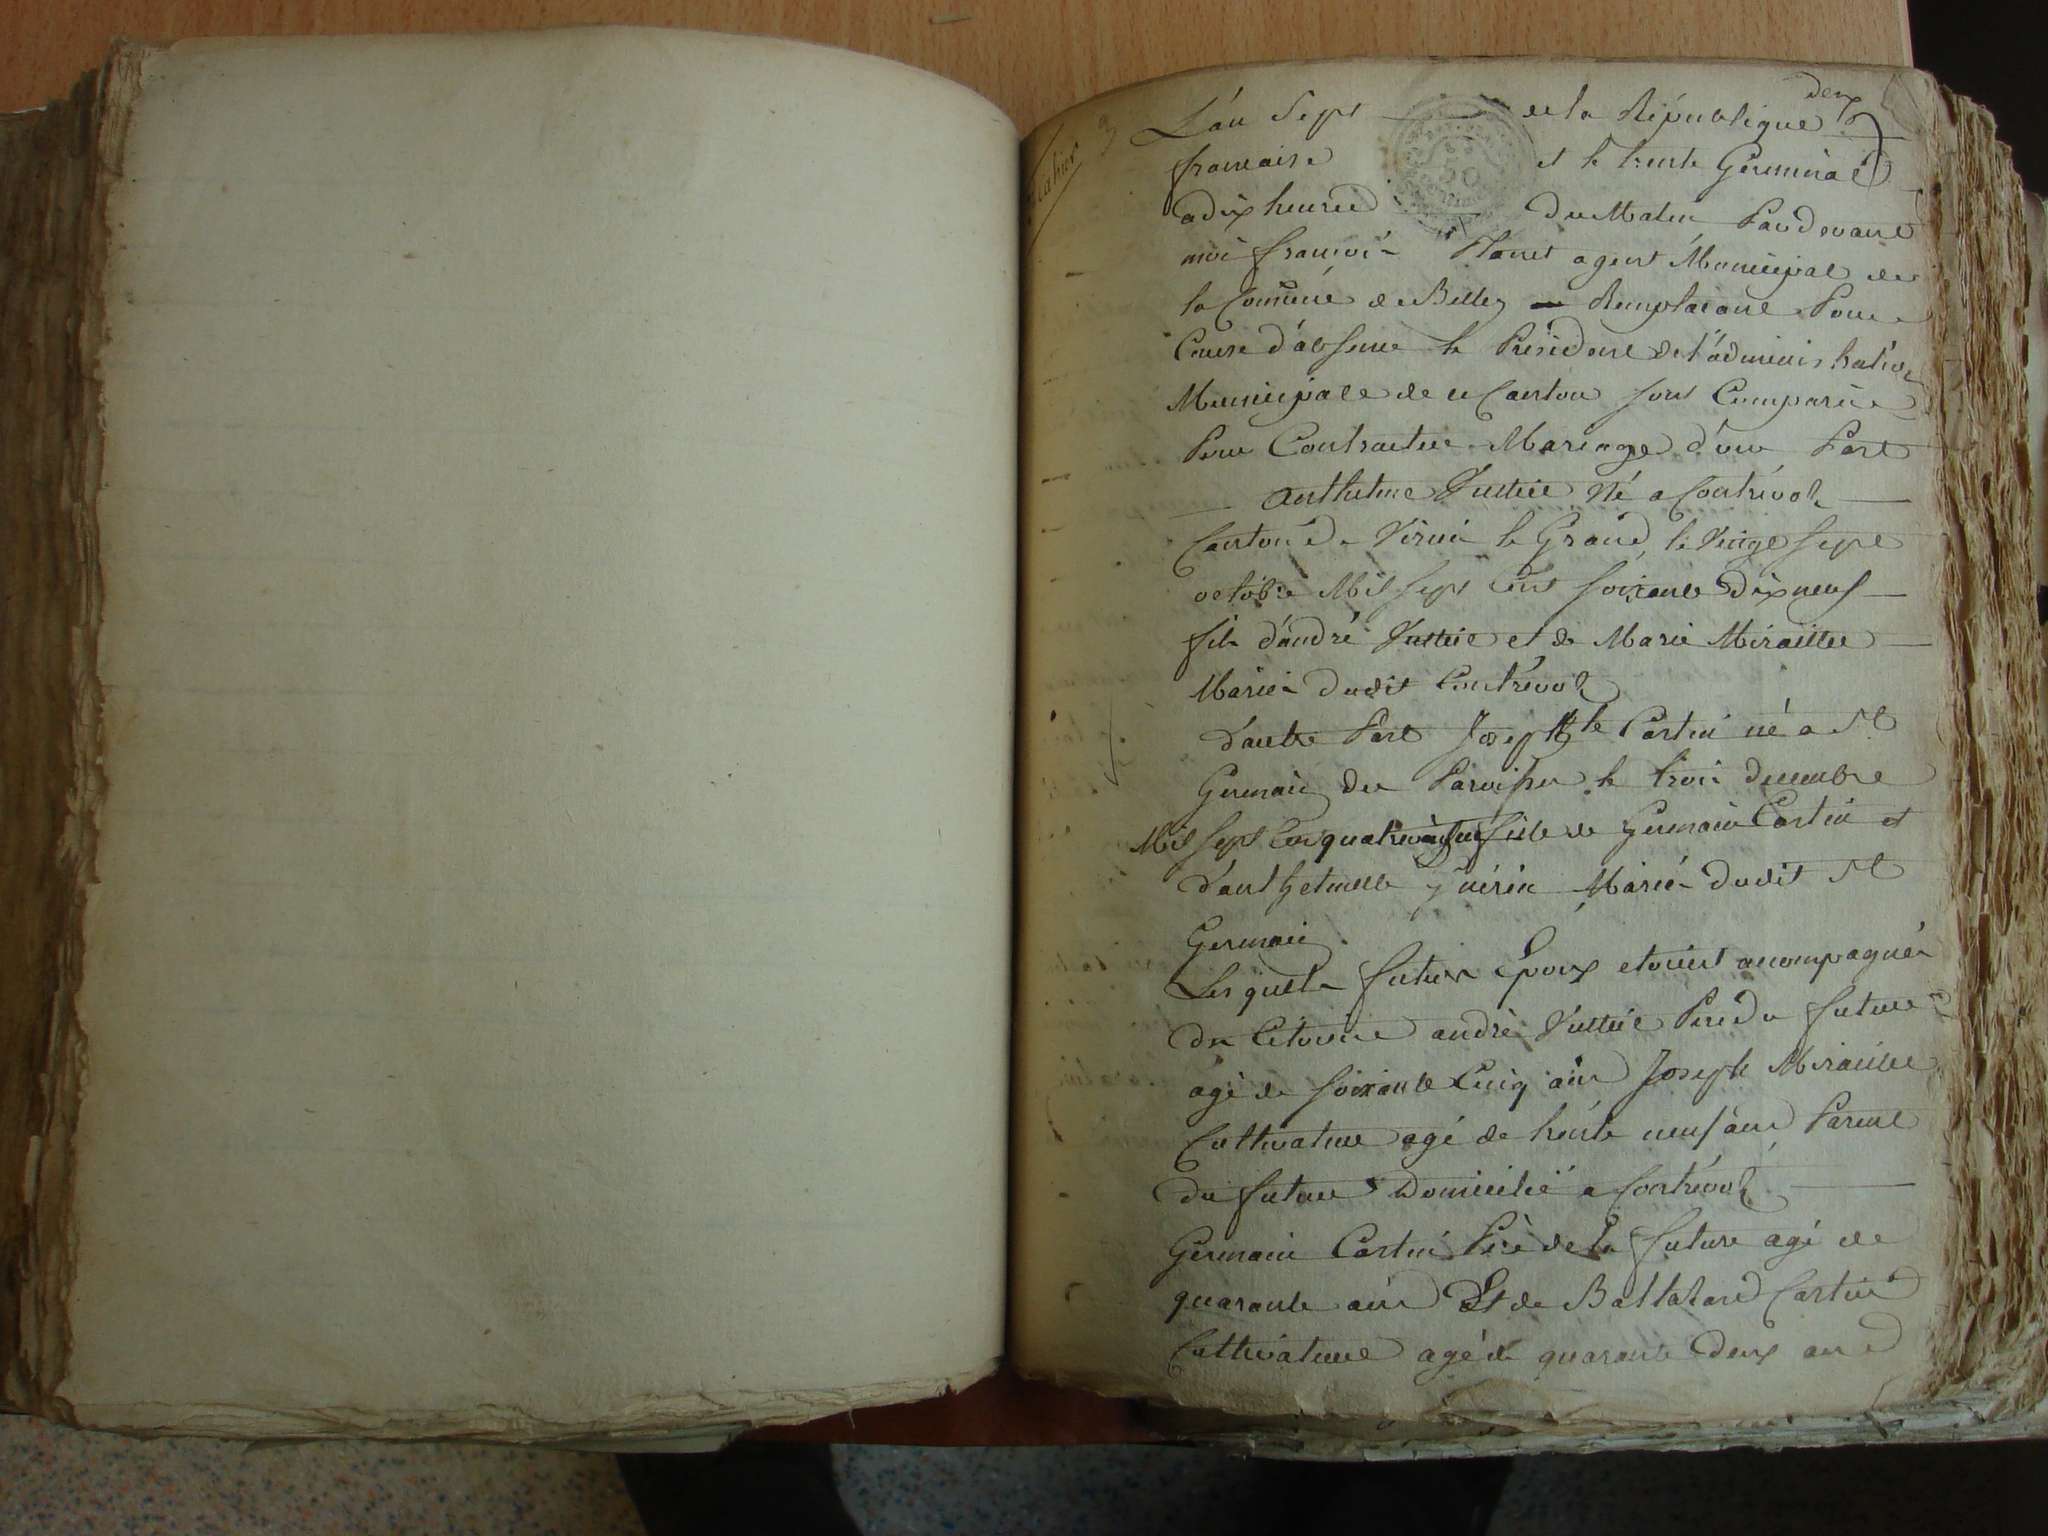 deux
L'an Sept de la République
francaise et le trente Germinal
a dix heures du Matin Pardevant
moi françois agent Municipal de
la Comune de Belley Remplacant Pour
Cause d'absence le Président de l'administration
Municipale de ce Canton sont Comparus
Pour Contracter Mariage d'une Part
anthelme Justice Né a Contrevoz
Canton de Virieu le Grand, le Vingt Sept
octobre Mil Sept Cent Soixante Dix neuf
fils d'andré Justice et de Marie Miraillet
Mariés dudit Contrevoz
d'autre Part Josephte Cartin né a St
Germain des Paroisses le trois decembre
Mil Sept Cent fille de Germain Cartin et
d'anthelmette Guérin Mariés dudit St
Germain
Lesquels futurs Epoux etoient accompagnés
du Citoyen andré Justice Pere du future
agé de Soixante Cinq ans Joseph Miraillet
Cultivateur agé de trente neuf ans Parent
du future Domicilié a Contrevoz
Germain Cartin Père de la future agé de
quarante ans Et de Baltazard Cartin
Cultivateur agé de quarante Deux ans